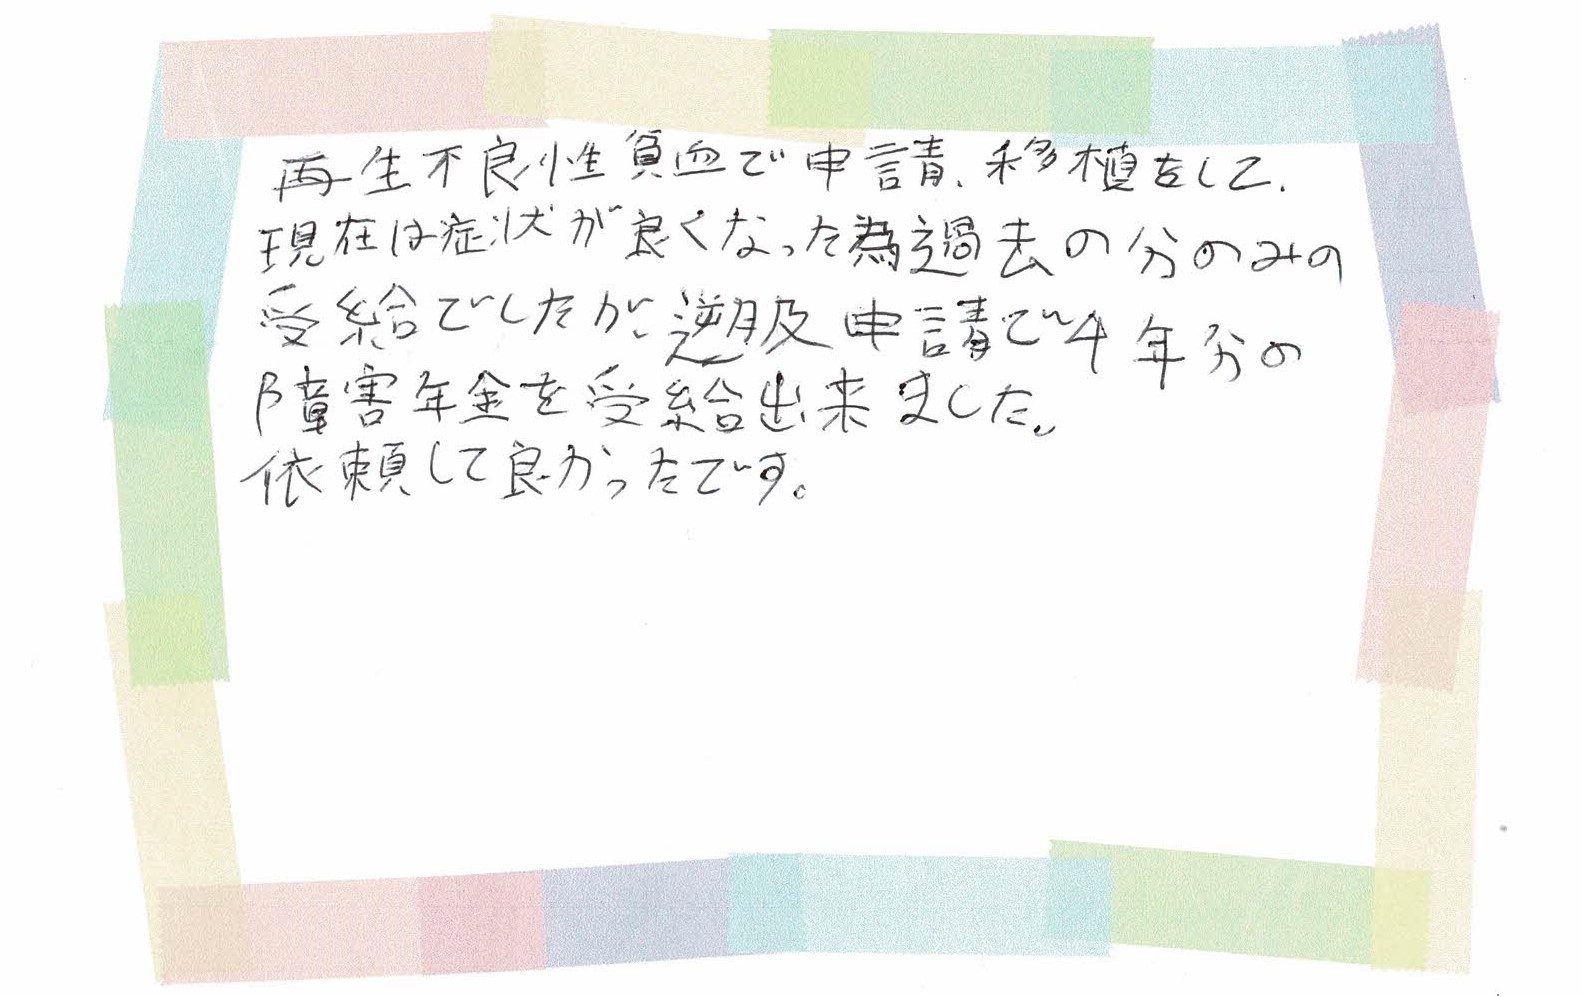 再生不良性貧血で申請、移植をして、
現在は症状が良くなった為過去の分のみの
受給でしたが、遡及申請で4年分の
障害年金を受給出来ました。
依頼して良かったです。